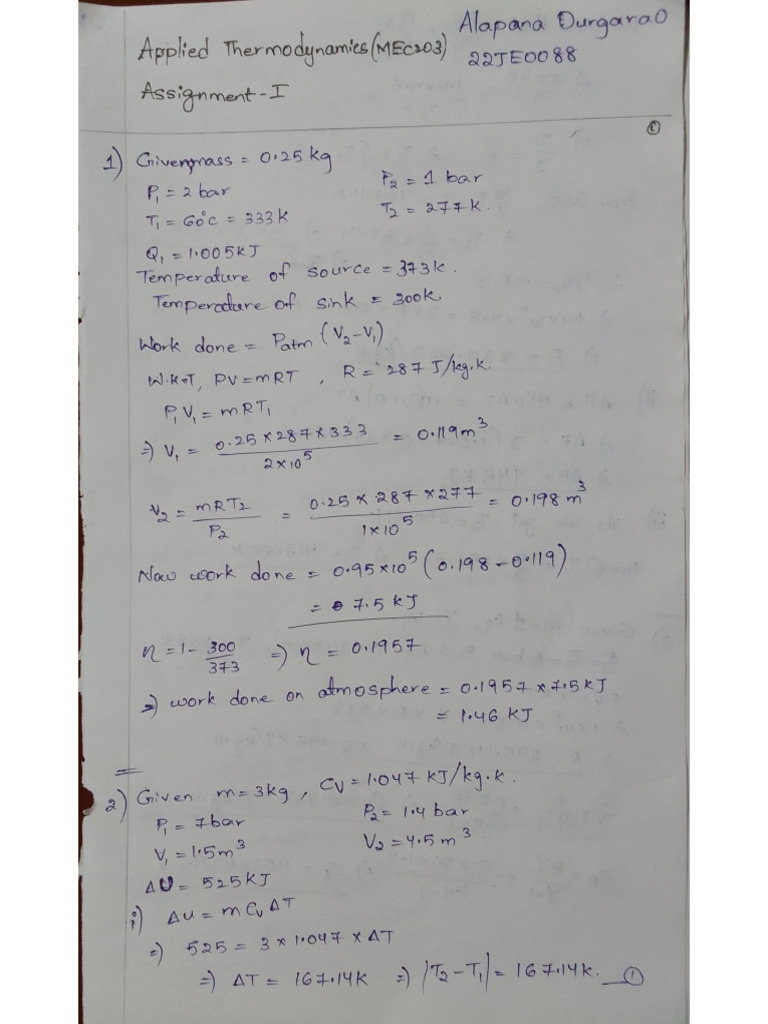 Alapana Durgarao
Applied Thermodynamics (MEC203) 22JE0088
Assignment-I
1) Given mass = 0.25 kg
P₁ = 2 bar P₂ = 1 bar
T₁ = 60°C = 333K T₂ = 277K.
Q₁ = 1.005KJ
Temperature of source = 373k.
Temperature of sink = 300k.
Work done = Patm (V₂-V₁)
W.K.T, PV = mRT , R = 287 J/kg.k.
P₁V₁ = mRT₁
=) V₁ = 0.25 x 287 x 333 / 2x10⁵ = 0.119m³
V₂ = mRT₂ / P₂ = 0.25 x 287 x 277 / 1x10⁵ = 0.198 m³
Now work done = 0.95x10⁵ (0.198-0.119)
= 7.5 KJ
η = 1- 300/373 =) η = 0.1957
=) work done on atmosphere = 0.1957 x 7.5 KJ
= 1.46 KJ
2) Given m = 3kg , CV = 1.047 KJ/kg.k.
P₁ = 7bar P₂ = 1.4 bar
V₁ = 1.5m³ V₂ = 4.5 m³
ΔU = 525KJ
i) Δu = m Cv ΔT
=) 525 = 3 x 1.047 x ΔT
=) ΔT = 167.14K =) |T₂-T₁| = 167.14K. — ①